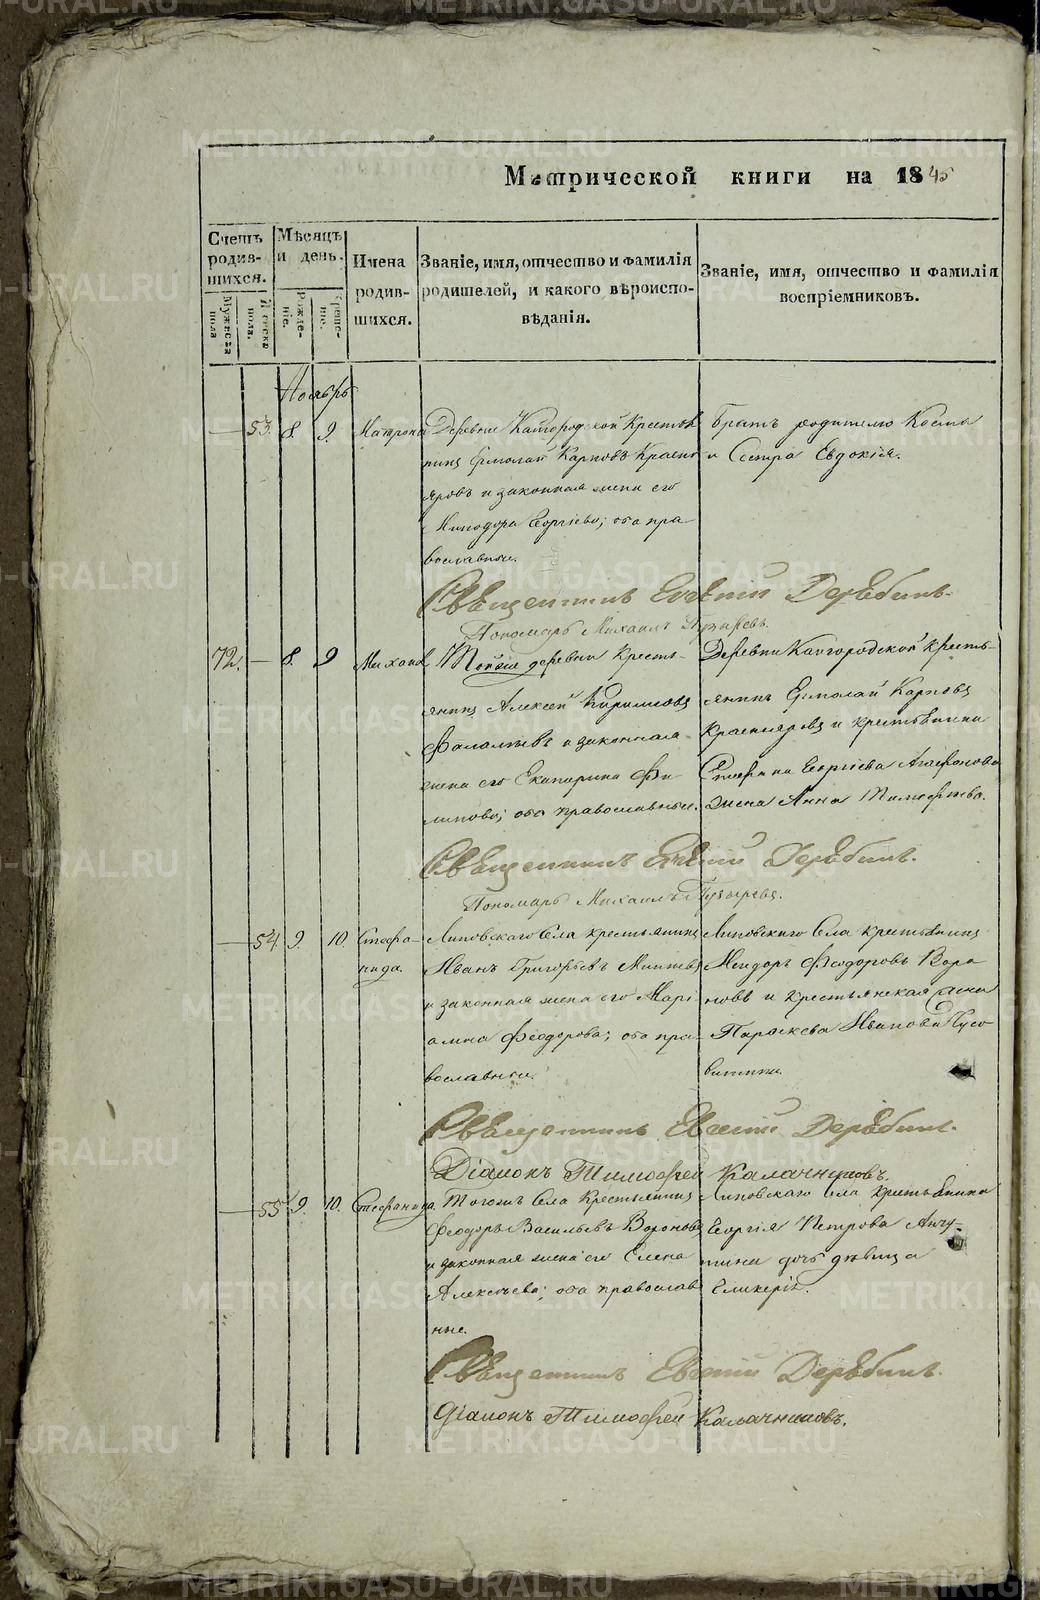 Метрической книги на 1845
Счетъ родив-шихся.
Мужеска пола
Женска пола.
Мѣсяцъ и день.
Рожде-ніе.
Креще-ніе.
Имена родив-шихся.
Званіе, имя, отчество и фамилія родителей, и какого вѣроиспо-вѣданія.
Званіе, имя, отчество и фамилія воспріемниковъ.
Ноябрь
— 53. 8. 9. Матрона
Деревни Кайгородской Крестья
нинъ Ермолай Карповъ Красно
яровъ и законная жена его
Минодора Георгіева; оба пра-
вославные.
Братъ родителю Косма
и Сестра Евдокія.
Священникъ Евгеній Дерябинъ.
Пономарь Михаилъ Пузыревъ.
72. — 8. 9 Михаил
Тойже деревни Кресть-
янинъ Алексей Кириловъ
и законная
жена его Екатерина Фи-
липова; оба православные.
Деревни Кайгородской Кресть-
янинъ Ермолай Карповъ
Краснояровъ и крестьянина
Георгіева Агафонова
жена Анна Тимофеева.
Священникъ Евгеній Дерябинъ.
Пономарь Михаилъ Пузыревъ.
— 54 9. 10. Стефа-
нида.
Липовскаго Села крестьянинъ
Иванъ Григорьевъ
и законная жена его Марі
амна Феодорова; оба пра
вославные.
Липовскаго Села крестьянинъ
Феодоровъ Воро
новъ и крестьянская жена
Параскева Иванова
Священникъ Евгеній Дерябинъ.
Діаконъ Тимофей Калачниковъ.
— 55 9. 10. Стефанида.
Тогожъ Села Крестьянинъ
Феодоръ Васильевъ Вороновъ
и законная жена его Елена
Алексеева; оба православ
ные.
Липовскаго Села крестьянина
Георгія Петрова Анчу-
тина дочь дѣвица
Гликерія.
Священникъ Евгеній Дерябинъ.
Діаконъ Тимофей Калачниковъ.
METRIKI.GASO-URAL.RU